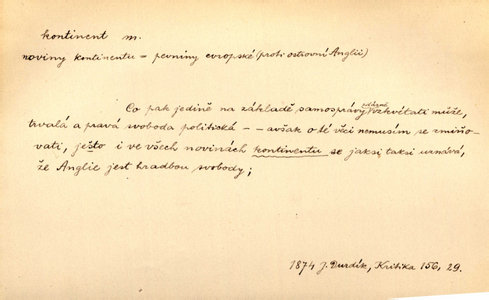 kontinent m.
noviny kontinentu – pevniny evropské (proti ostrovní Anglii)
Co pak jedině na základě samosprávy vzkvétati může,
trvalá a pravá svoboda politická – – avšak o té věci nemusím se zmiňo-
vati, ježto i ve všech novinách kontinentu se jaksi taksi uznává,
že Anglie jest hradbou svobody;
1874 J. Durdík, Kritika 156, 29.